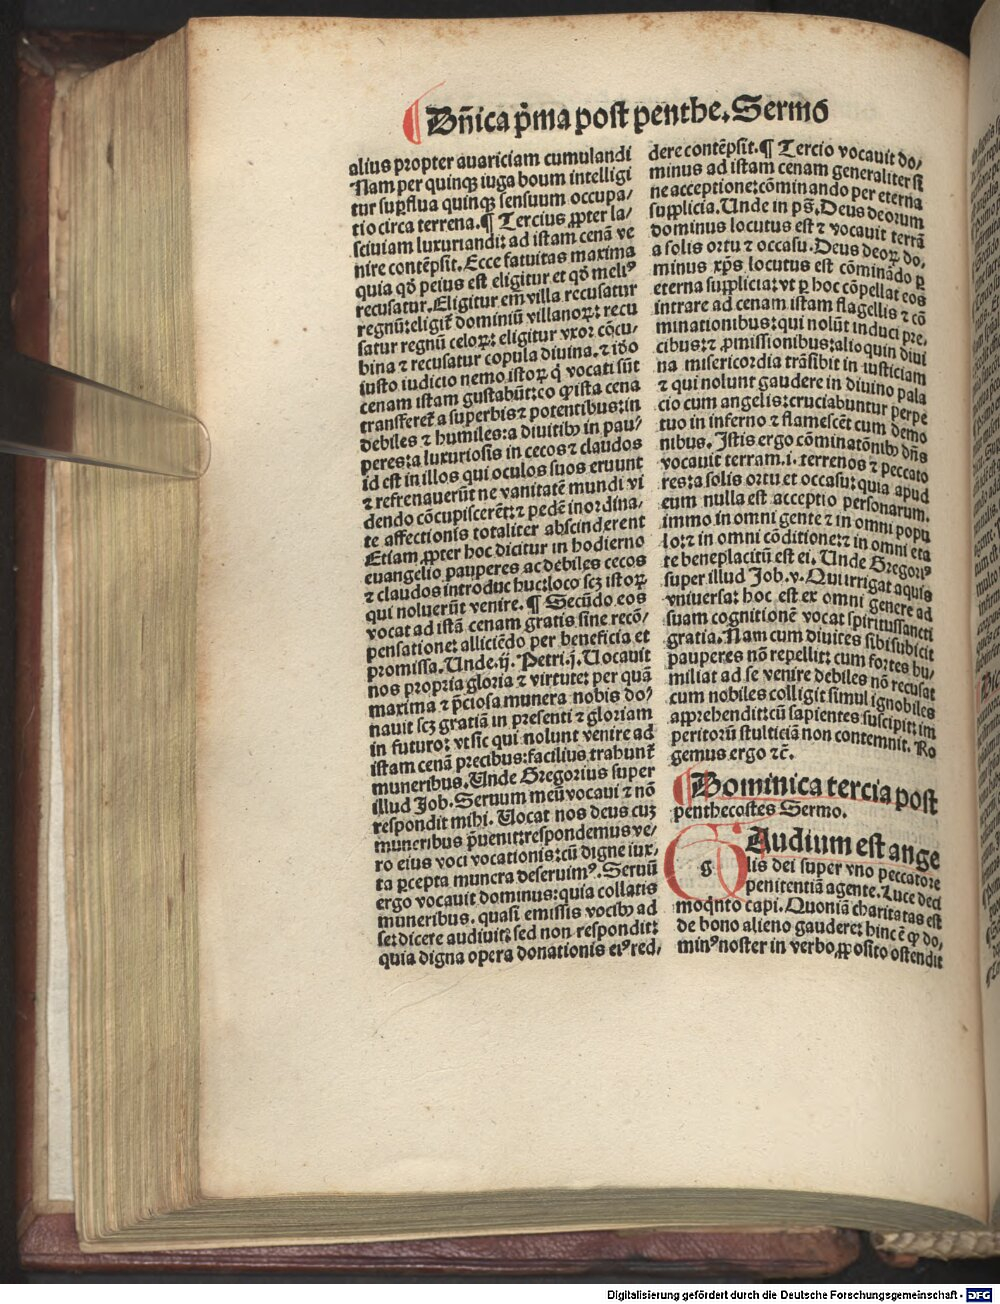 ¶ Dñica p̃ma post penthe. Sermo
alius propter auariciam cumulandi
Nam per quinqꝫ iuga boum intelligi
tur suꝑflua quinqꝫ sensuum occupa⸗
tio circa terrena. ¶ Tercius ꝓpter la⸗
sciuiam luxuriandi: ad istam cenã ve
nire contẽpsit. Ecce fatuitas maxima
quia qđ peius est eligitur et qđ meliꝰ
recusatur. Eligitur em̃ villa recusatur
regnũ: eligit̃ dominiũ villanoꝝ: recu
satur regnũ celoꝝ: eligitur vxor cõcu⸗
bina ⁊ recusatur copula diuina. ⁊ iđo
iusto iudicio nemo istoꝝ q̇ vocati sũt
cenam istam gustabũt: eo ꝙ ista cena
transferet̃ a superbis ⁊ potentibus: in
debiles ⁊ humiles: a diuitibꝫ in pau⸗
peres: a luxuriosis in cecos ⁊ claudos
id est in illos qui oculos suos eruunt
⁊ refrenauerũt ne vanitatẽ mundi vi
dendo cõcupiscerẽt: ⁊ pedẽ inordina⸗
te affectionis totaliter abscinderent
Etiam ꝓpter hoc dicitur in hodierno
euangelio pauperes ac debiles cecos
⁊ claudos introduc huc: loco scꝫ istoꝝ
qui noluerũt venire. ¶ Secũdo eos
vocat ad istã cenam gratis sine recõ⸗
pensatione: alliciẽdo per beneficia et
promissa. Unde .ij. Petri .j. Uocauit
nos propria gloria ⁊ virtute: per quã
maxima ⁊ p̃ciosa munera nobis do⸗
nauit scꝫ gratiã in presenti ⁊ gloriam
in futuro: vt sic qui nolunt venire ad
istam cenã precibus: facilius trahunt̃
muneribus. Unde Gregorius super
illud Job. Seruum meũ vocaui ⁊ nõ
respondit mihi. Uocat nos deus cuꝫ
muneribus p̃uenit: respondemus ve⸗
ro eius voci vocationis: cũ digne iux⸗
ta ꝑcepta munera deseruimꝰ. Seruũ
ergo vocauit dominus: quia collatis
muneribus. quasi emissis vocibꝫ ad
se: dicere audiuit: sed non respondit:
quia digna opera donationis eiꝰ red⸗
dere contẽpsit. ¶ Tercio vocauit do⸗
minus ad istam cenam generaliter si
ne acceptione: cõminando per eterna
supplicia. Unde in pš. Deus deorum
dominus locutus est ⁊ vocauit terrã
a solis ortu ⁊ occasu. Deus deoꝝ do⸗
minus xp̃s locutus est cõminãdo ꝑ
eterna supplicia: vt ꝑ hoc cõpellat eos
intrare ad cenam istam flagellis ⁊ cõ
minationibus: qui nolũt induci pre⸗
cibus: ⁊ ꝓmissionibus: alioquin diui
na misericordia trãsibit in iusticiam
⁊ qui nolunt gaudere in diuino pala
cio cum angelis: cruciabuntur perpe
tuo in inferno ⁊ flamescẽt cum demo
nibus. Istis ergo cõminatõnibꝫ dñs
vocauit terram .i. terrenos ⁊ peccato
res: a solis ortu et occasu: quia apud
eum nulla est acceptio personarum.
immo in omni gente ⁊ in omni popu
lo: ⁊ in omni cõditione: ⁊ in omni eta
te beneplacitũ est ei. Unde Gregoriꝰ
super illud Job .v. Qui irrigat aquis
vniuersa: hoc est ex omni genere ad
suam cognitionẽ vocat spiritussancti
gratia. Nam cum diuites sibi subicit
pauperes nõ repellit: cum fortes hu⸗
miliat ad se venire debiles nõ recusat
cum nobiles colligit simul ignobiles
apprehendit: cũ sapientes suscipit: im
peritorũ stulticiã non contemnit. Ro
gemus ergo ⁊c̃.
¶ Dominica tercia post
penthecostes Sermo.
g Audium est ange
lis dei super vno peccatore
penitentiã agente. Luce deci
moqnto capi. Quoniã charitatas est
de bono alieno gaudere: hinc ẽ ꝙ do⸗
minꝰ noster in verbo ꝓposito ostendit
Digitalisierung gefördert durch die Deutsche Forschungsgemeinschaft - DFG